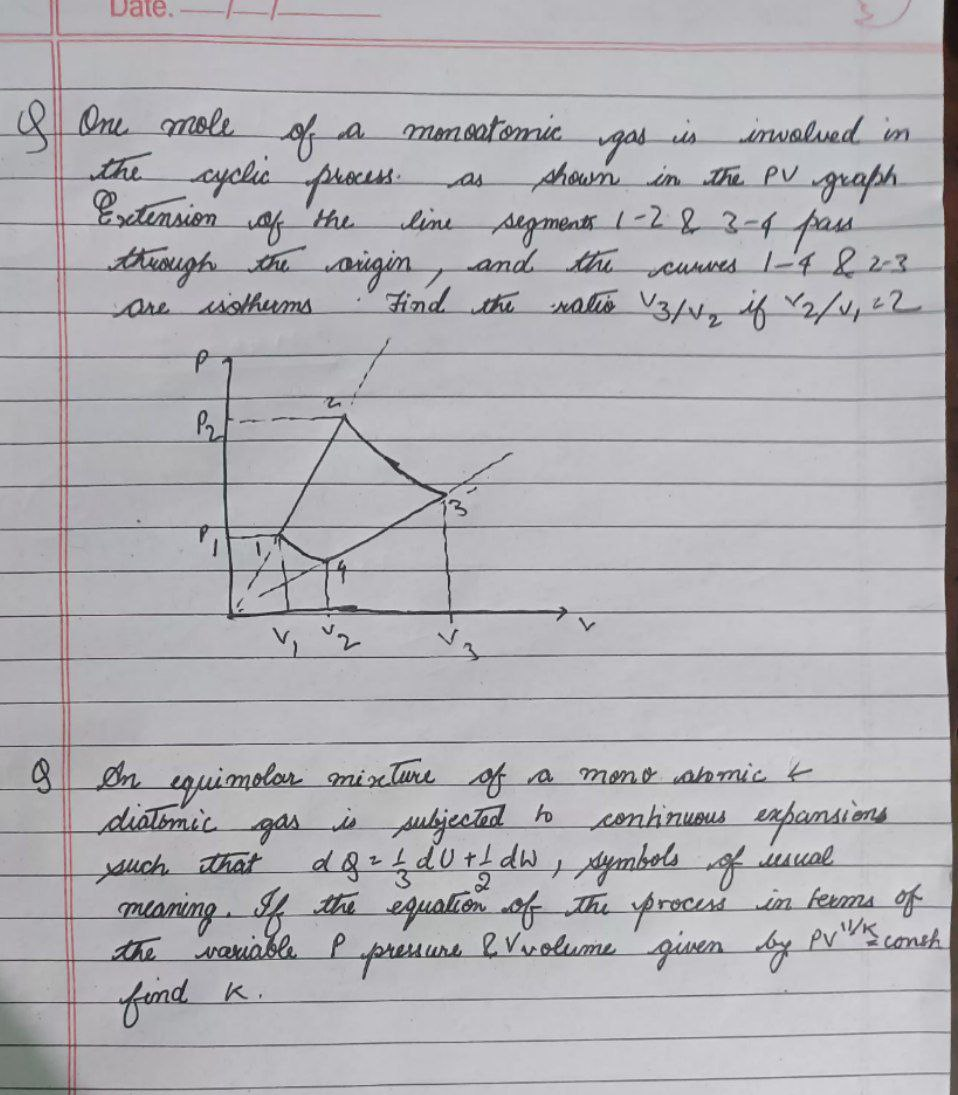 Date.
Q One mole of a monoatomic gas is involved in
the cyclic process. as shown in the PV graph
Extension of the line segments 1-2 & 3-4 pass
through the origin, and the curves 1-4 & 2-3
are isotherms. Find the ratio V3/V2 if V2/V1 = 2
P
P2
2
3
P1
1
4
V1 V2 V3 V
Q An equimolar mixture of a mono atomic &
diatomic gas is subjected to continuous expansions
such that dQ = 1/3 dU + 1/2 dW, symbols of usual
meaning. If the equation of the process in terms of
the variable P pressure & V volume given by PV^11/K = const
find K.